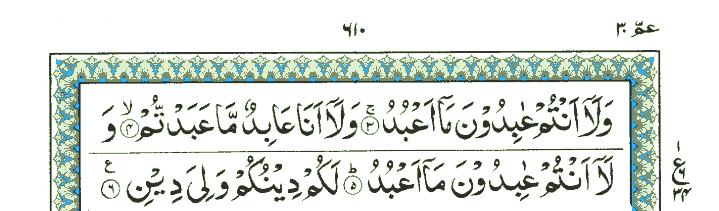 عمّ ۳۰
۶۱۰
وَلَاۤ اَنْتُمْ عٰبِدُوْنَ مَاۤ اَعْبُدُ ۚ‏﴿۳﴾ وَلَاۤ اَنَا عَابِدٌ مَّا عَبَدْتُّمْ ۙ‏﴿۴﴾ وَ
لَاۤ اَنْتُمْ عٰبِدُوْنَ مَاۤ اَعْبُدُ ؕ‏﴿۵﴾ لَكُمْ دِيْنُكُمْ وَلِىَ دِيْنِ ﴿۶﴾ ع
۱
ع
۶
۳۴